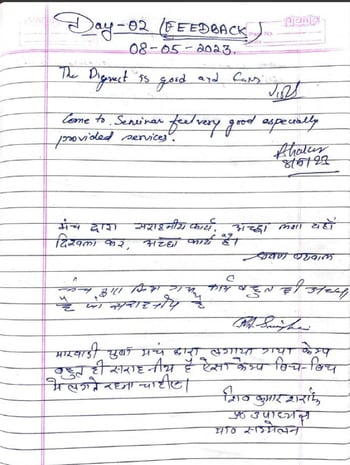 Day-02 (FEEDBACK)
08-05-2023.
The is good and
Come to Seminar feel very good especially
provided services.
8/5/23
मंच द्वारा सराहनीय कार्य, अच्छा लगा यहाँ
दिखला कर, अच्छा कार्य है।
मंच द्वारा किया गया कार्य बहुत ही अच्छा
है जो सराहनीय है
मारवाड़ी युवा मंच द्वारा लगाया गया केम्प
बहुत ही सराहनीय है ऐसा केम्प बिच-बिच
में लगते रहना चाहीए।
शिव कुमार सराफ